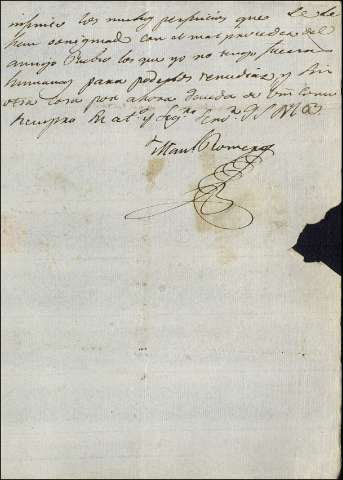 los muchos perjuicios que se le
han originado con el mal proceder del
amigo Rubio los que yo no tengo fuerzas
humanas para poderlos remediar y sin
otra cosa por ahora queda de Vm como
siempre su at.º y seg.ro
Man.l Romero